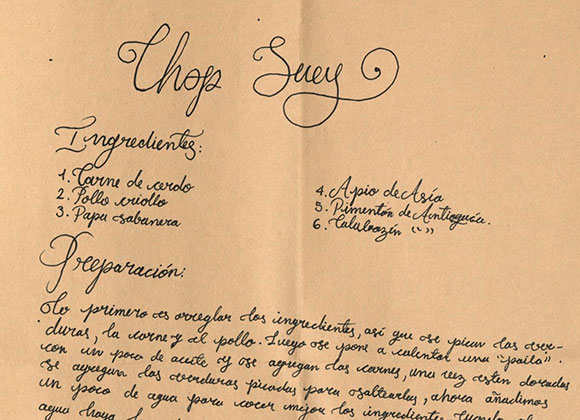 Chop Suey
Ingredientes:
1. Carne de cerdo
2. Pollo criollo
3. Papa sabanera
4. Apio de Asia
5. Pimentón de Antioquia.
6. Calabazín “ ”
Preparación:
Lo primero es arreglar los ingredientes, así que se pican las ver-
duras, la carne y el pollo. Luego se pone a calentar una "paila"
con un poco de aceite y se agregan las carnes, una vez estén doradas
se agregan las verduras picadas para saltearlas, ahora añadimos
un poco de agua para cocer mejor los ingredientes. Cuando el
agua haya